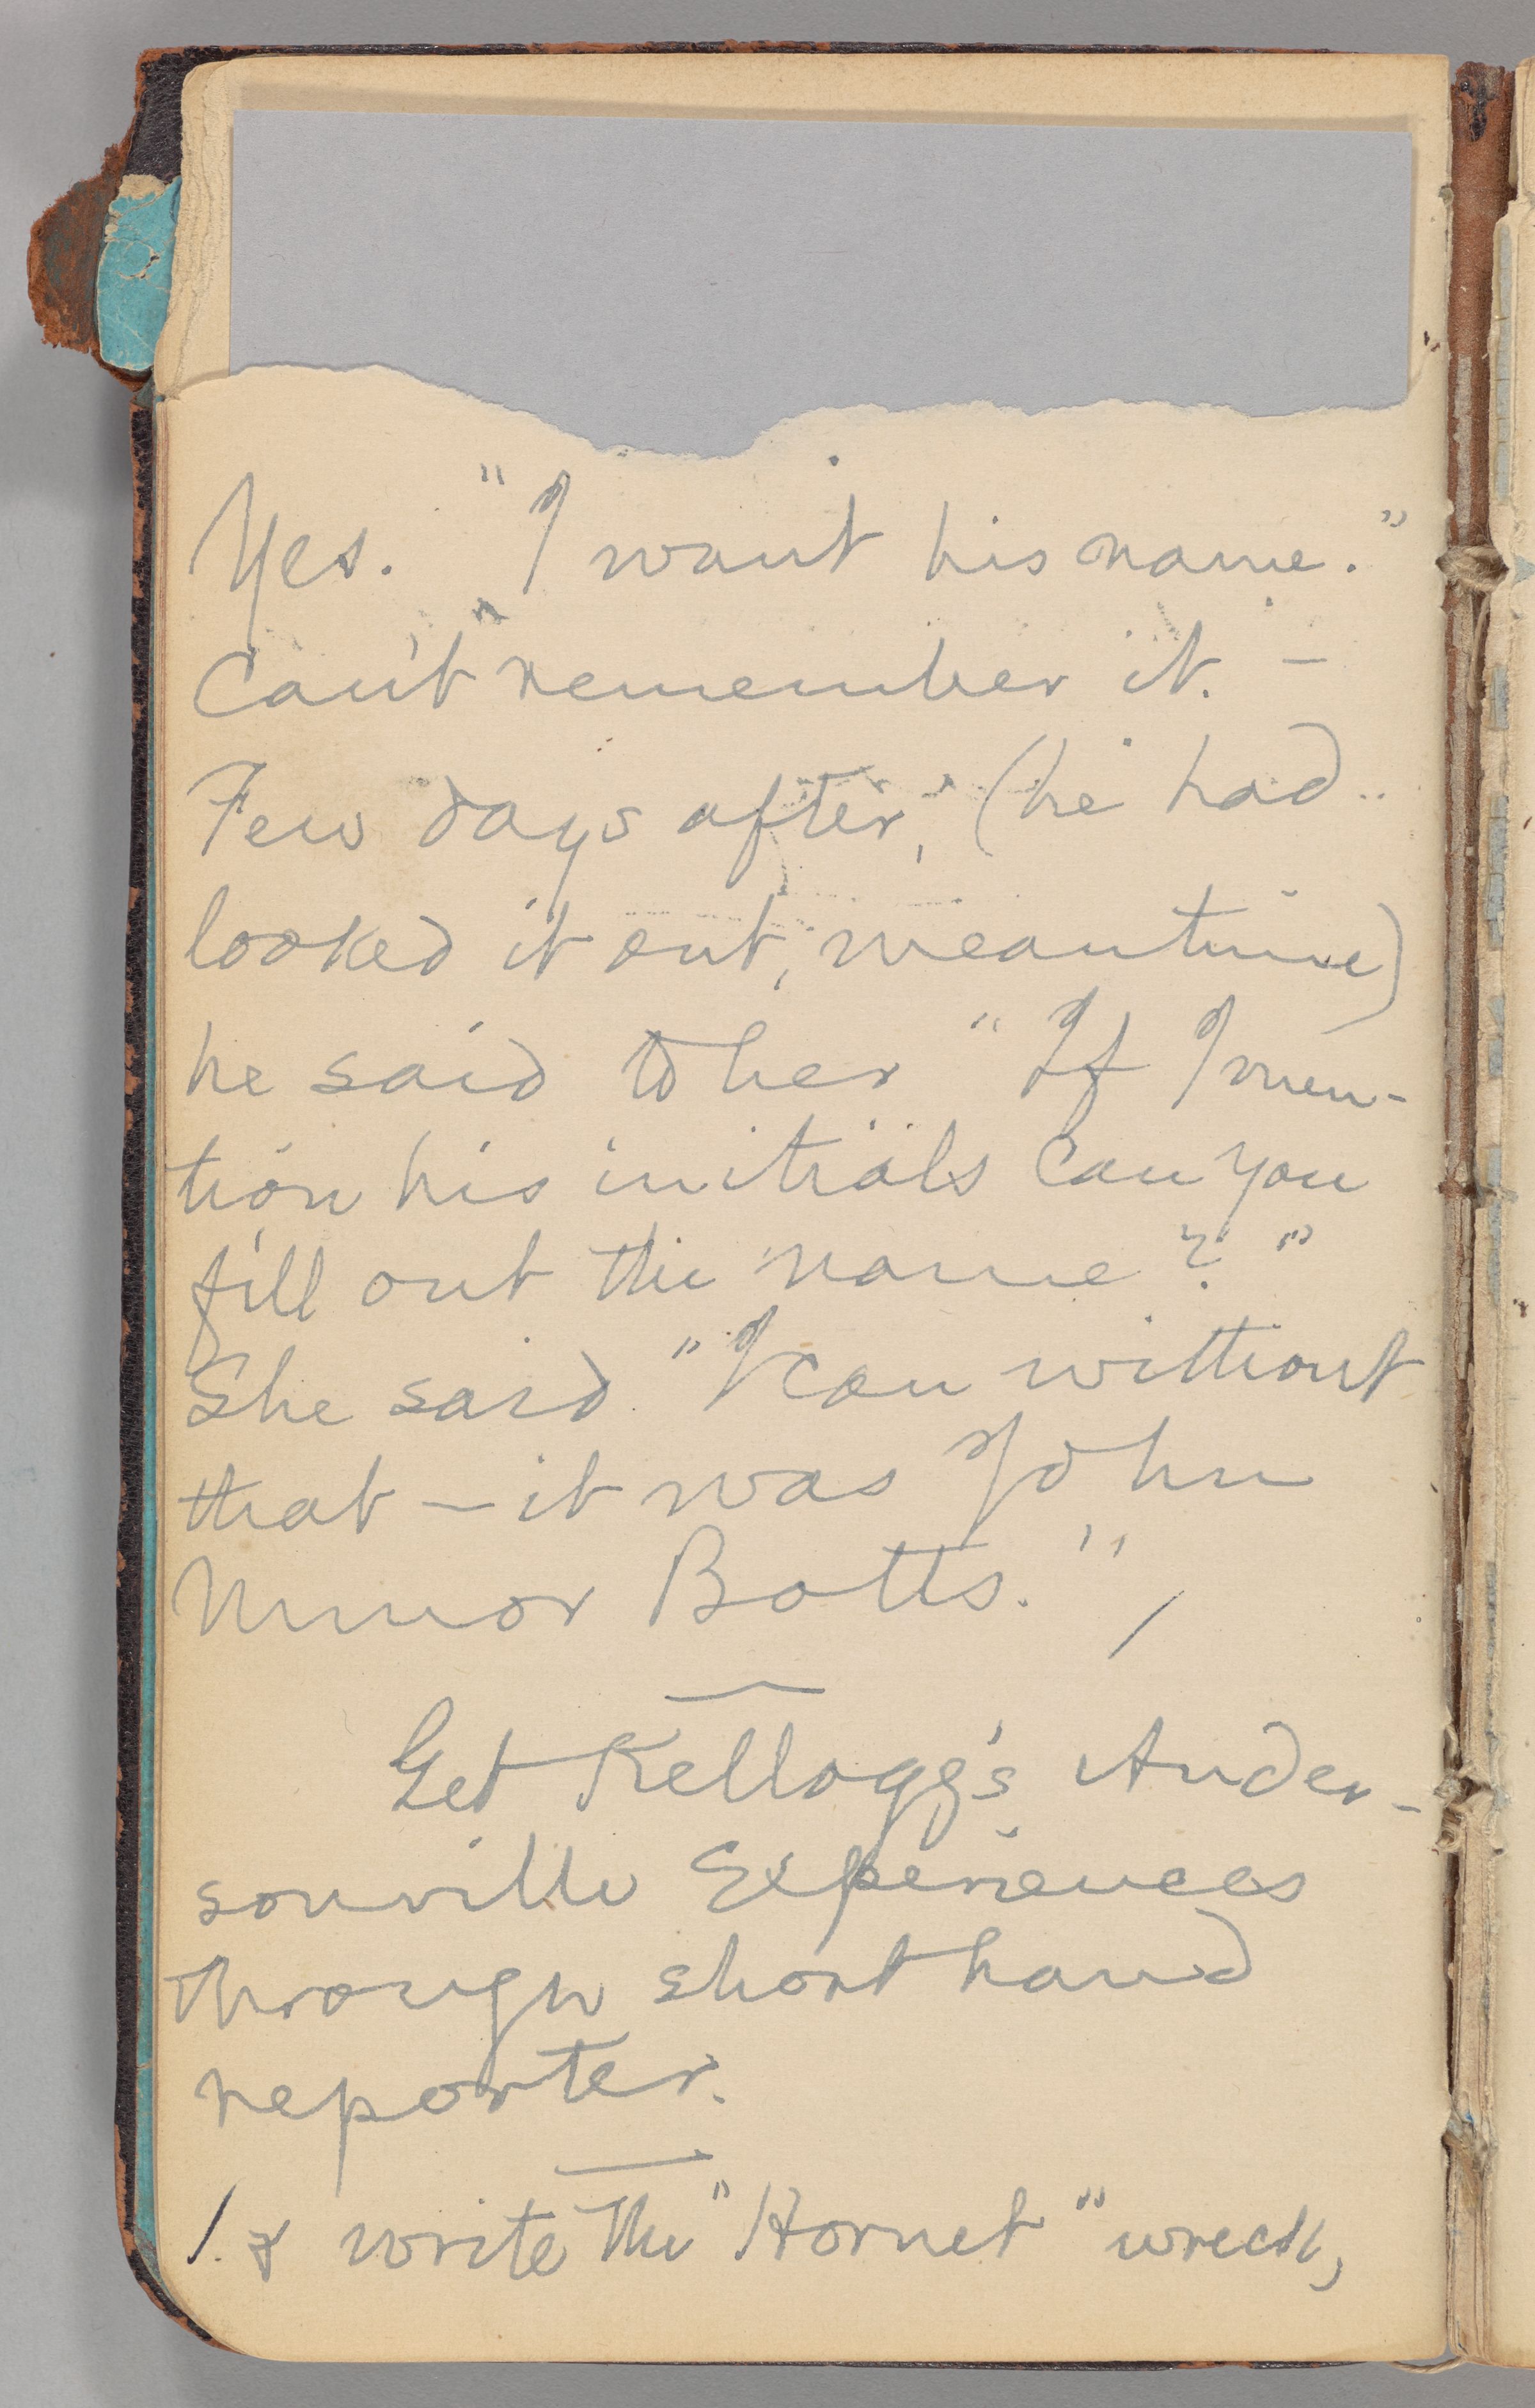 Yes. "I want his name."
Can't remember it. —
Few days after, (he had
looked it out, meantime)
he said to her "If I men-
tion his initials can you
fill out the name?"
She said "I can without
that — it was John
Minor Botts."
Get Kellogg's Ander-
sonville Experiences
through short hand
reporter.
& write the "Hornet" wreck,